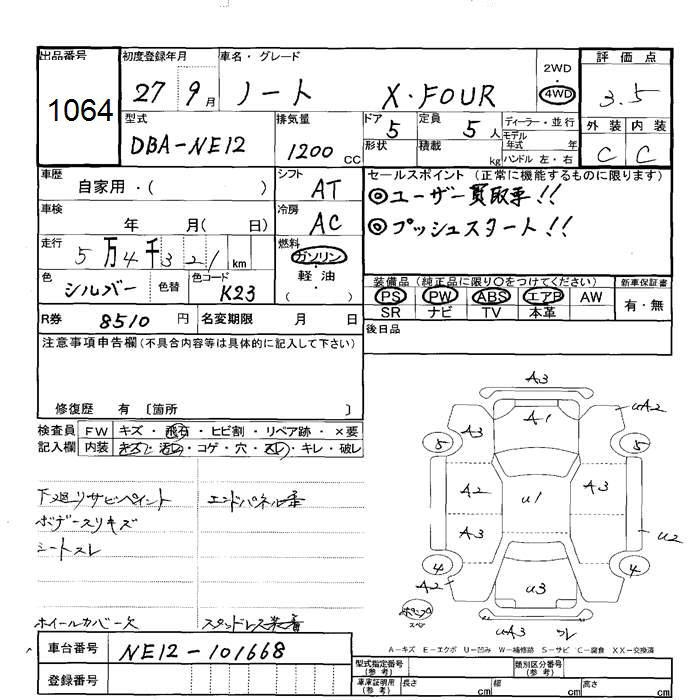 出品番号 初度登録年月 車名・グレード 評価点
1064 27 9月 ノート X・FOUR 2WD・4WD 3.5
型式 排気量 ドア 定員 ディーラー・並行 外装 内装
DBA-NE12 1200cc 5 5人 モデル年式 年 C C
形状 積載 kg ハンドル 左・右
車歴 シフト セールスポイント (正常に機能するものに限ります)
自家用・( ) AT ◎ユーザー買取車!!
車検 冷房 ◎プッシュスタート!!
年 月( 日) AC
走行 燃料
5万4千321km ガソリン・軽油・( )
色 色替 色コード 装備品 (純正品に限り○をつけてください) 新車保証書
シルバー K23 PS PW ABS エアB AW 有・無
SR ナビ TV 本革
R券 8510円 名変期限 月 日 後日品
注意事項申告欄(不具合内容等は具体的に記入して下さい)
修復歴 有 〔箇所 〕
検査員 FW キズ・飛石・ヒビ割・リペア跡・×要
記入欄 内装 キズ・汚れ・コゲ・穴・スレ・キレ・破レ
下廻リサビペイント エンドパネル歪
ボデースリキズ
シートスレ
ホイールカバー欠 スタッドレス装着
A3
A3 A1 uA2
5 5
A2 u1 A3
A3 u2
4 4
A2 u3
スペア
uA3
A-キズ E-エクボ U-凹み W-補修跡 S-サビ C-腐食 XX-交換済
車台番号 NE12-101668
登録番号
型式指定番号(参考) 類別区分番号(参考)
車庫証明用(参考) 長さ cm 幅 cm 高さ cm